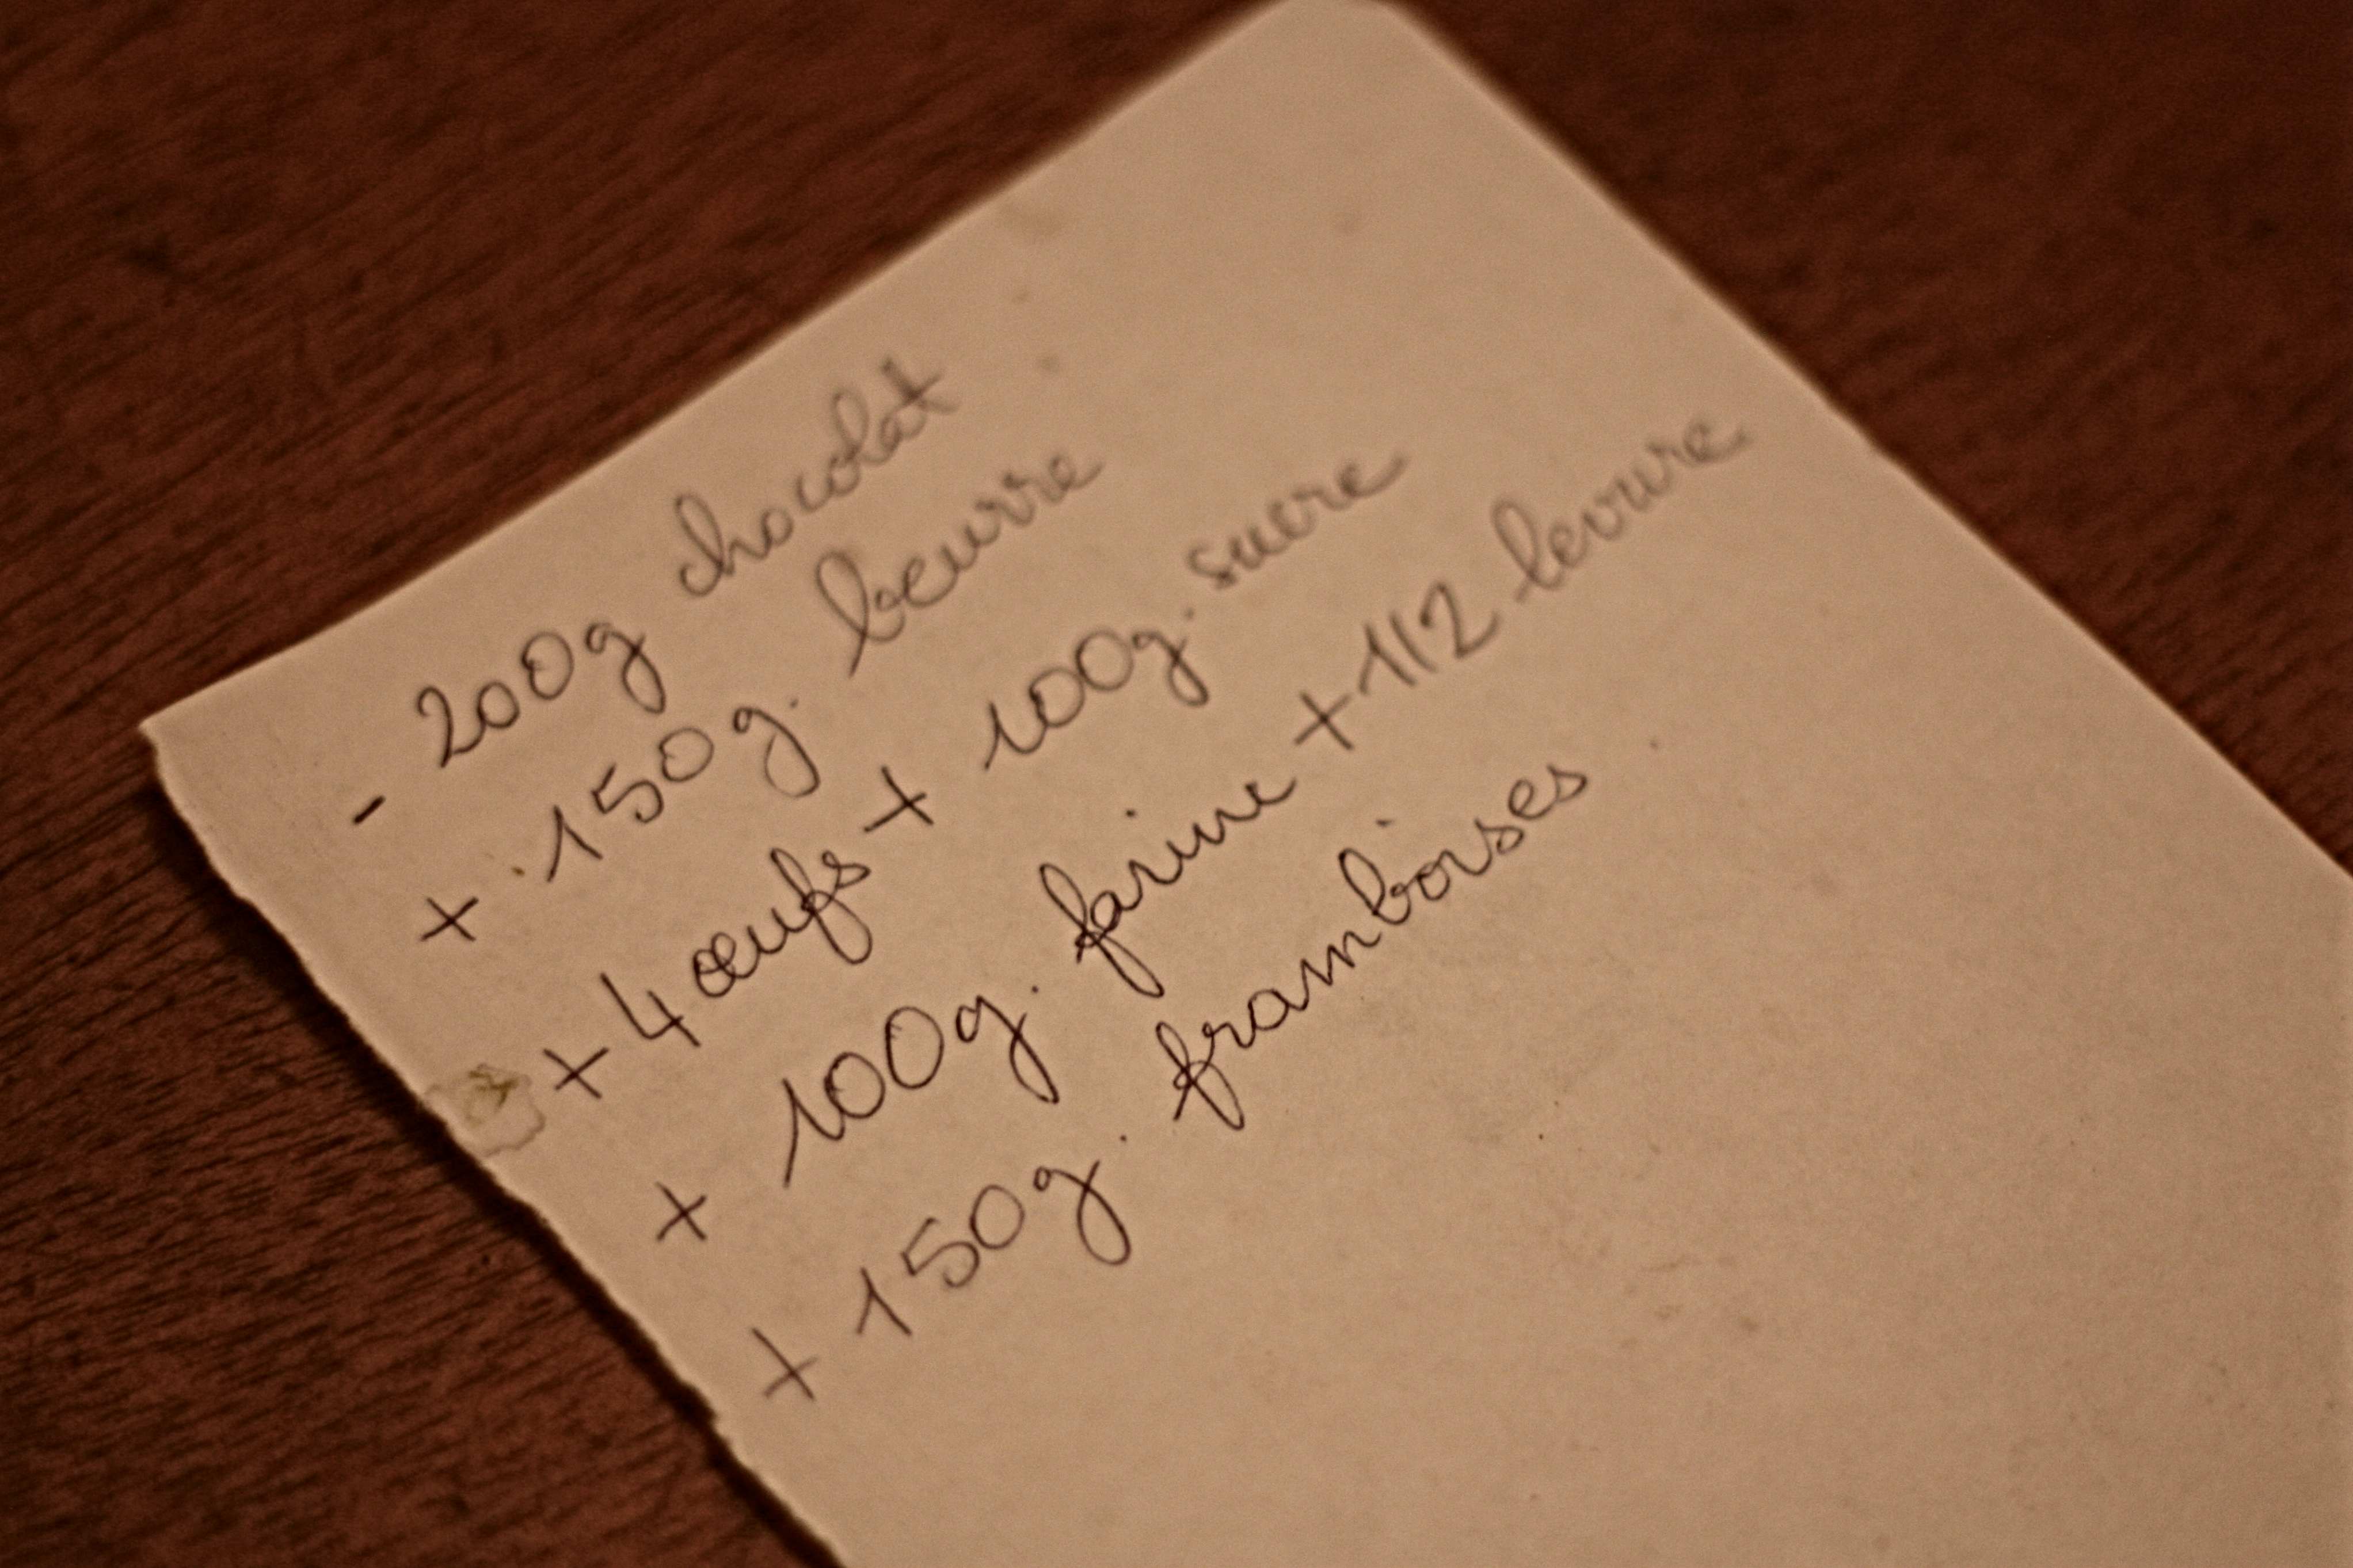 - 200g chocolat
+ 150g. beurre
+ 4 œufs + 100g. sucre
+ 100g. farine + 1/2 levure
+ 150g. framboises